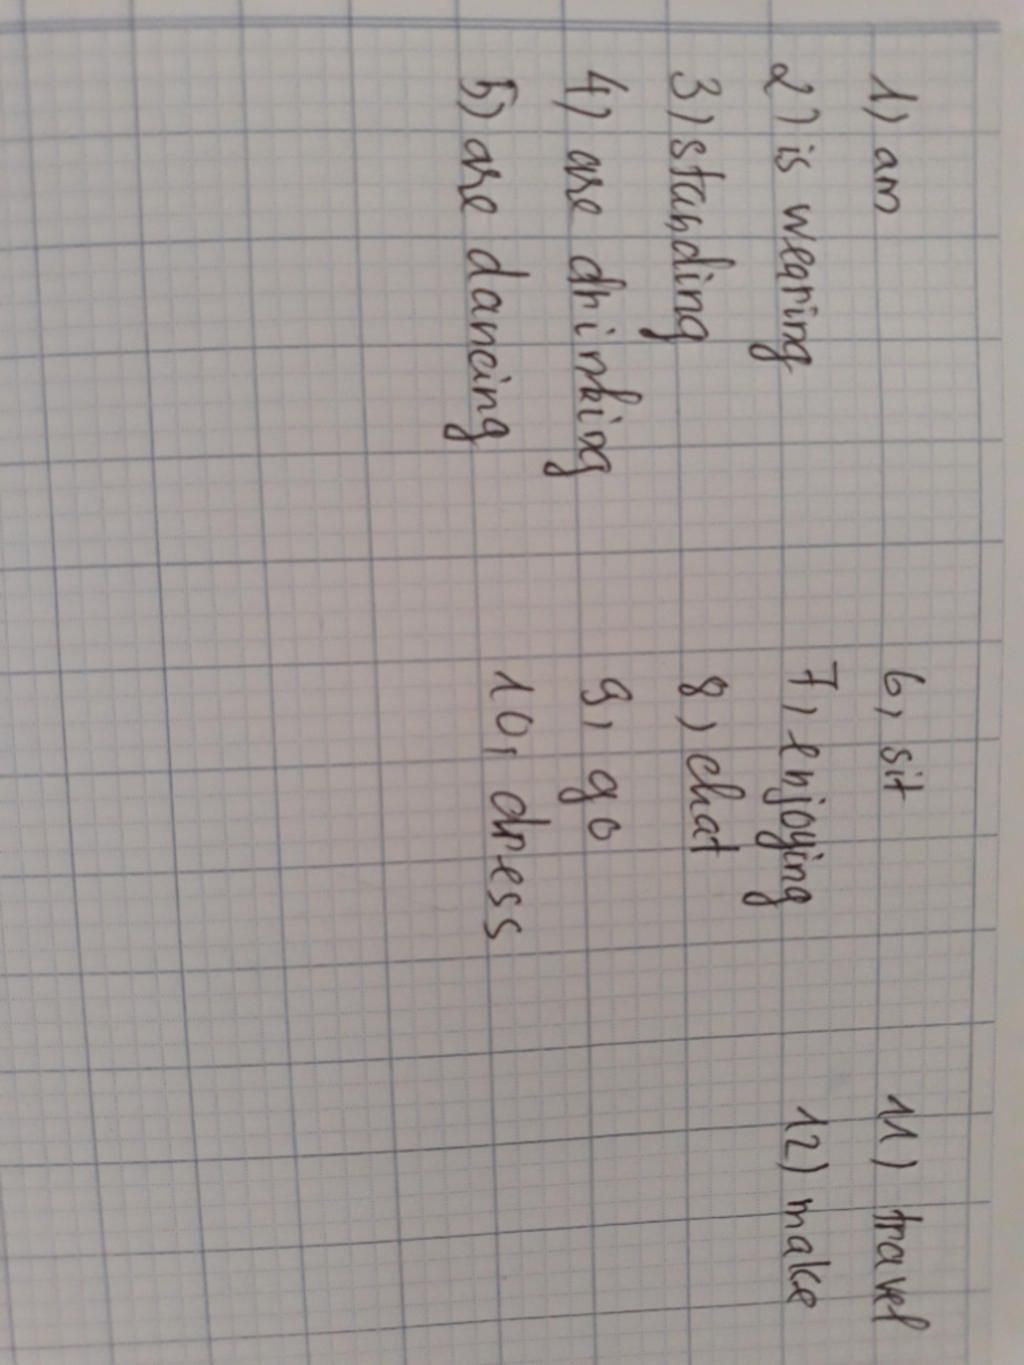 1) am
2) is wearing
3) standing
4) are drinking
5) are dancing
6, sit
7, enjoying
8, chat
9, go
10, dress
11) travel
12) make